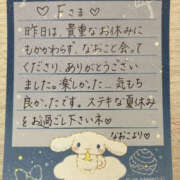 ♡ Fさま ♡
昨日は、貴重なお休みに
もかかわらず、なおこと会って
くださり、ありがとうござい
ました。楽しかた…気もち
良かたです。ステキな夏休み
をお過ごし下さいネ♡
なおこより♡